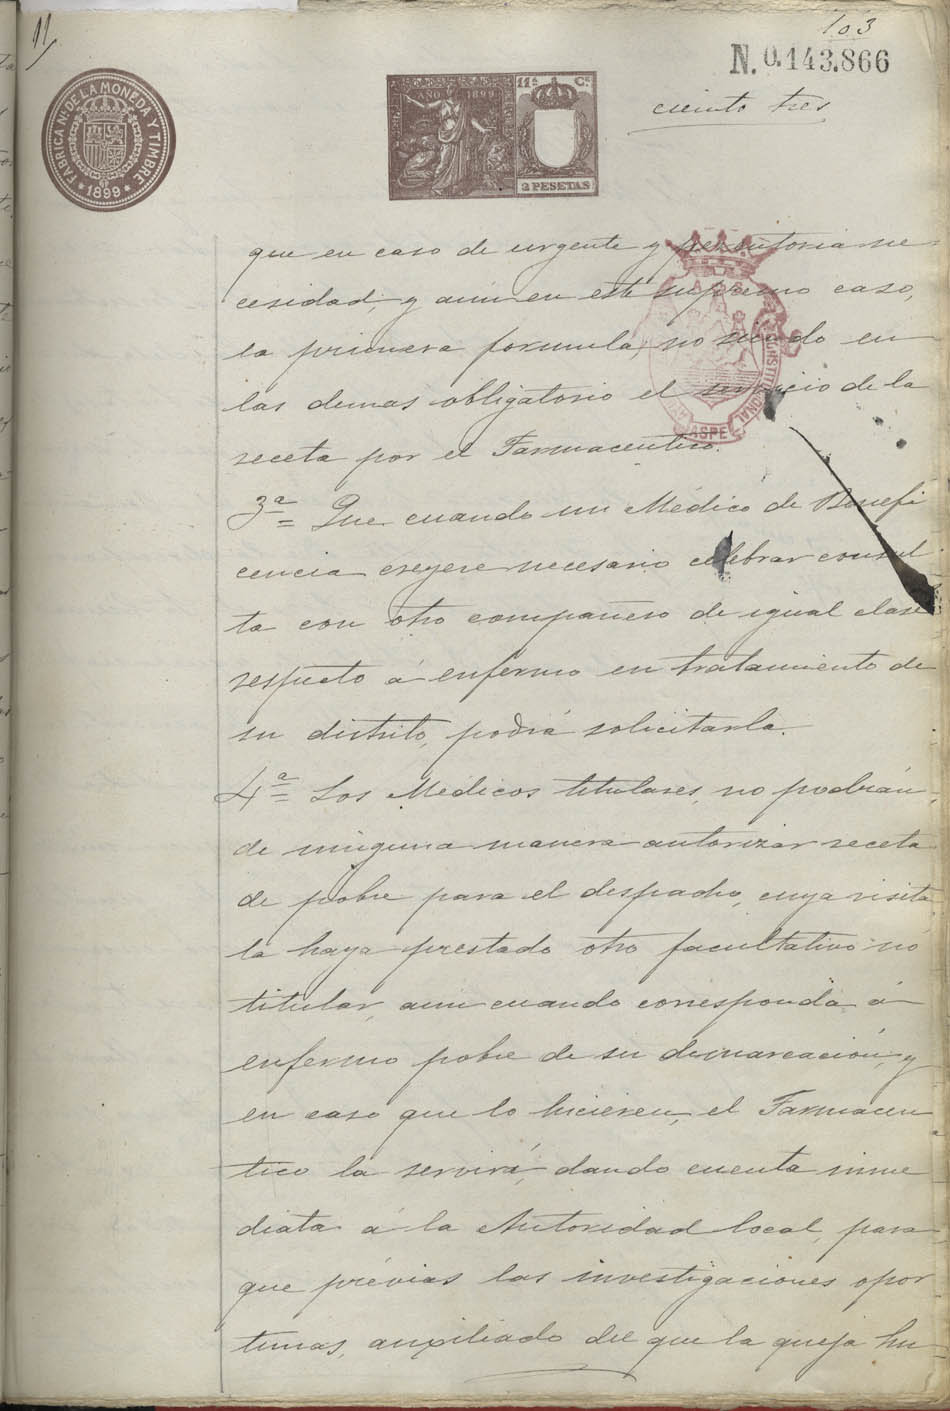 11
103
N. 0.143.866
ciento tres
FABRICA Nal. DE LA MONEDA Y TIMBRE
* 1899 *
AÑO 1899
11ª Cº
2 PESETAS
que en caso de urgente y perentoria ne
cesidad, y aun en este supremo caso,
la primera formula, no siendo en
las demas obligatorio el servicio de la
receta por el Farmaceutico.
3ª = Que cuando un Médico de Benefi
cencia creyere necesario celebrar consul
ta con otro compañero de igual clase
respecto á enfermo en tratamiento de
su distrito, podrá solicitarla.
4ª = Los Médicos titulares, no podrán
de ninguna manera autorizar receta
de pobre para el despacho, cuya visita
la haya prestado otro facultativo no
titular, aun cuando corresponda á
enfermo pobre de su demarcación, y
en caso que lo hicieren, el Farmaceu
tico la servirá, dando cuenta inme
diata á la Autoridad local, para
que prévias las investigaciones opor
tunas, auxiliado del que la queja hu
CONSTITUCIONAL
ASPE